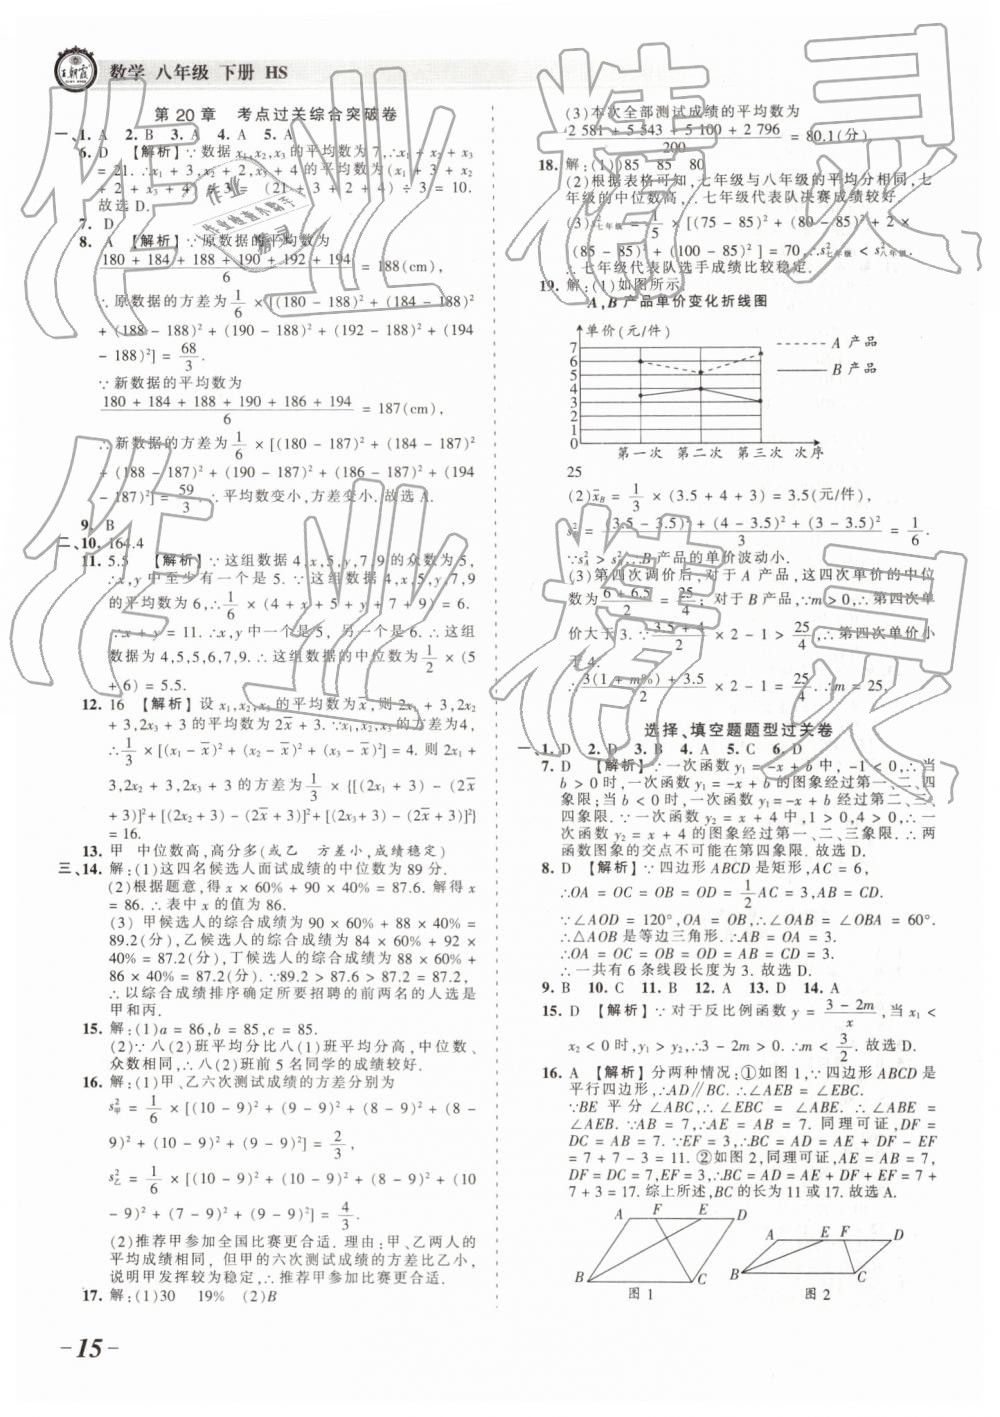 王朝霞
数学 八年级 下册 HS
第 20 章 考点过关综合突破卷
一、1. A 2. B 3. A 4. A 5. A
6. D 【解析】∵数据 x₁,x₂,x₃ 的平均数为 7,∴x₁ + x₂ + x₃
= 21. ∴x₁ + 3,x₂ + 2,x₃ + 4 的平均数为 (x₁ + 3 + x₂
+ 2 + x₃ + 4) ÷ 3 = (21 + 3 + 2 + 4) ÷ 3 = 10.
故选 D.
7. D
8. A 【解析】∵原数据的平均数为
(180 + 184 + 188 + 190 + 192 + 194)/6 = 188(cm),
∴原数据的方差为 1/6 × [(180 - 188)² + (184 - 188)²
+ (188 - 188)² + (190 - 188)² + (192 - 188)² + (194
- 188)²] = 68/3.
∵新数据的平均数为
(180 + 184 + 188 + 190 + 186 + 194)/6 = 187(cm),
∴新数据的方差为 1/6 × [(180 - 187)² + (184 - 187)²
+ (188 - 187)² + (190 - 187)² + (186 - 187)² + (194
- 187)²] = 59/3. ∴平均数变小,方差变小. 故选 A.
9. B
二、10. 164.4
11. 5.5 【解析】∵这组数据 4,x,5,y,7,9 的众数为 5,
∴x,y 中至少有一个是 5. ∵数据 4,x,5,y,7,9
的平均数为 6,∴1/6 × (4 + x + 5 + y + 7 + 9) = 6.
∴x + y = 11. ∴x,y 中一个是 5,另一个是 6. ∴这组
数据为 4,5,5,6,7,9. ∴这组数据的中位数为 1/2 × (5
+ 6) = 5.5.
12. 16 【解析】设 x₁,x₂,x₃ 的平均数为 x̄,则 2x₁ + 3,2x₂
+ 3,2x₃ + 3 的平均数为 2x̄ + 3. ∵x₁,x₂,x₃ 的方差为 4,
∴1/3 × [(x₁ - x̄)² + (x₂ - x̄)² + (x₃ - x̄)²] = 4. 则 2x₁ +
3,2x₂ + 3,2x₃ + 3 的方差为 1/3 × {[(2x₁ + 3) - (2x̄
+ 3)]² + [(2x₂ + 3) - (2x̄ + 3)]² + [(2x₃ + 3) - (2x̄ + 3)]²}
= 16.
13. 甲 中位数高,高分多(或乙 方差小,成绩稳定)
三、14. 解:(1)这四名候选人面试成绩的中位数为 89 分.
(2)根据题意,得 x × 60% + 90 × 40% = 87.6. 解得 x
= 86. ∴表中 x 的值为 86.
(3) 甲候选人的综合成绩为 90 × 60% + 88 × 40% =
89.2(分),乙候选人的综合成绩为 84 × 60% + 92 ×
40% = 87.2(分),丁候选人的综合成绩为 88 × 60% +
86 × 40% = 87.2(分). ∵89.2 > 87.6 > 87.2 = 87.2,
∴以综合成绩排序确定所要招聘的前两名的人选是
甲和丙.
15. 解:(1)a = 86,b = 85,c = 85.
(2)∵八(2)班平均分比八(1)班平均分高,中位数、
众数相同,∴八(2)班前 5 名同学的成绩较好.
16. 解:(1)甲、乙六次测试成绩的方差分别为
s²甲 = 1/6 × [(10 - 9)² + (9 - 9)² + (8 - 9)² + (8 -
9)² + (10 - 9)² + (9 - 9)²] = 2/3,
s²乙 = 1/6 × [(10 - 9)² + (10 - 9)² + (8 - 9)² + (10
- 9)² + (7 - 9)² + (9 - 9)²] = 4/3.
(2)推荐甲参加全国比赛更合适. 理由:甲、乙两人的
平均成绩相同,但甲的六次测试成绩的方差比乙小,
说明甲发挥较为稳定,∴推荐甲参加比赛更合适.
17. 解:(1)30 19% (2)B
(3)本次全部测试成绩的平均数为
(2 581 + 5 543 + 5 100 + 2 796)/200 = 80.1(分)
18. 解:(1)85 85 80
(2)根据表格可知,七年级与八年级的平均分相同,七
年级的中位数高,∴七年级代表队决赛成绩较好.
(3)s²七年级 = 1/5 × [(75 - 85)² + (80 - 85)² + 2 ×
(85 - 85)² + (100 - 85)²] = 70,∴s²七年级 < s²八年级.
∴七年级代表队选手成绩比较稳定.
19. 解:(1)如图所示
A,B 产品单价变化折线图
单价(元/件)
7
6
5
4
3
2
1
0
第一次 第二次 第三次 次序
A 产品
B 产品
25
(2)x̄B = 1/3 × (3.5 + 4 + 3) = 3.5(元/件),
s²B = [(3.5 - 3.5)² + (4 - 3.5)² + (3 - 3.5)²]/3 = 1/6.
∵s²A > s²B,∴B 产品的单价波动小.
(3)第四次调价后,对于 A 产品,这四次单价的中位
数为 (6 + 6.5)/2 = 25/4;对于 B 产品,∵m > 0,∴第四次单
价大于 3. ∵(3.5 + 4)/2 × 2 - 1 > 25/4,∴第四次单价小
于 4.
∴[3(1 + m%) + 3.5]/2 × 2 - 1 = 25/4. ∴m = 25.
选择、填空题题型过关卷
一、1. D 2. D 3. B 4. A 5. C 6. D
7. D 【解析】∵一次函数 y₁ = -x + b 中, -1 < 0,∴当
b > 0 时,一次函数 y₁ = -x + b 的图象经过第一、二、四
象限;当 b < 0 时,一次函数 y₁ = -x + b 经过第二、三、
四象限. ∵一次函数 y₂ = x + 4 中,1 > 0,4 > 0,∴一
次函数 y₂ = x + 4 的图象经过第一、二、三象限. ∴两
函数图象的交点不可能在第四象限. 故选 D.
8. D 【解析】∵四边形 ABCD 是矩形,AC = 6,
∴OA = OC = OB = OD = 1/2 AC = 3,AB = CD.
∵∠AOD = 120°,OA = OB,∴∠OAB = ∠OBA = 60°.
∴△AOB 是等边三角形. ∴AB = OA = 3.
∴OA = OC = OB = OD = AB = CD = 3.
∴一共有 6 条线段长度为 3. 故选 D.
9. B 10. C 11. B 12. A 13. D 14. A
15. D 【解析】∵对于反比例函数 y = (3 - 2m)/x,当 x₁ <
x₂ < 0 时,y₁ > y₂,∴3 - 2m > 0. ∴m < 3/2. 故选 D.
16. A 【解析】分两种情况:①如图 1,∵四边形 ABCD 是
平行四边形,∴AD∥BC. ∴∠AEB = ∠EBC.
∵BE 平分 ∠ABC,∴∠EBC = ∠ABE. ∴∠ABE =
∠AEB. ∵AB = 7,∴AE = AB = 7. 同理可证,DF =
DC = AB = 7. ∵EF = 3,∴BC = AD = AE + DF - EF
= 7 + 7 - 3 = 11. ②如图 2,同理可证,AE = AB = 7,
DF = DC = 7,EF = 3,∴BC = AD = AE + DF + EF = 7 +
7 + 3 = 17. 综上所述,BC 的长为 11 或 17. 故选 A.
A F E D
B C
图 1
A E F D
B C
图 2
- 15 -
作业精灵
作业精灵